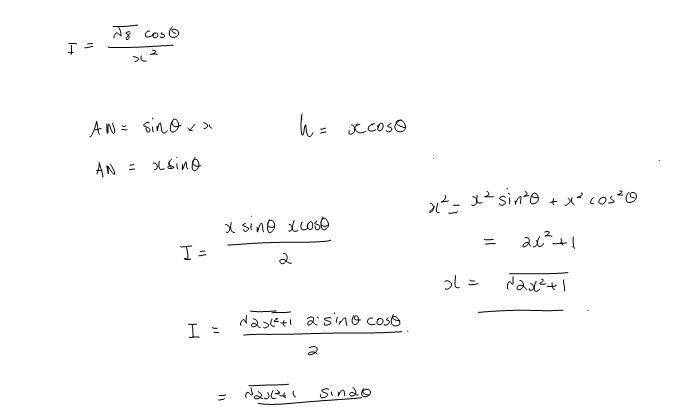 I = √8 cosθ / x²
AN = sinθ × x
h = x cosθ
AN = x sinθ
x² = x² sin²θ + x² cos²θ
= 2x² + 1
x = √2x²+1
I = x sinθ x cosθ / 2
I = √2x²+1 2 sinθ cosθ / 2
= √2x²+1 sin2θ